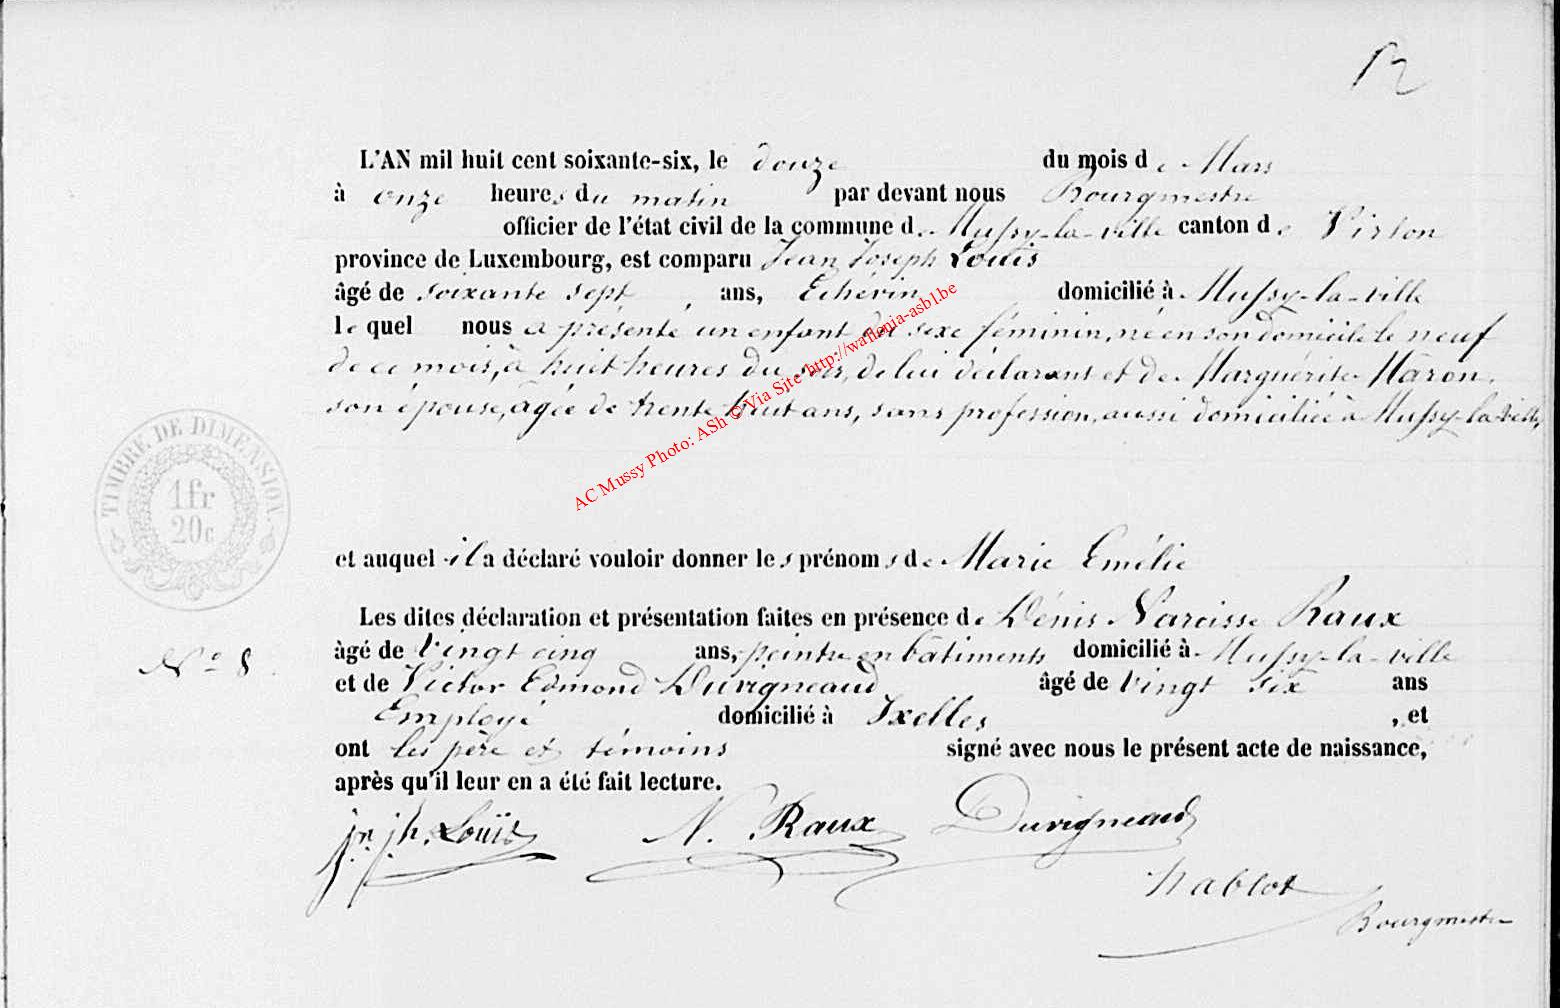 12
L'AN mil huit cent soixante-six, le douze du mois de Mars
à onze heures du matin par devant nous Bourgmestre
officier de l'état civil de la commune de Mussy-la-ville canton de Virton
province de Luxembourg, est comparu Jean Joseph Louis
âgé de soixante sept ans, Echévin domicilié à Mussy-la-ville
lequel nous a présenté un enfant du sexe féminin, né en son domicile le neuf
de ce mois, à huit heures du soir, de lui déclarant et de Marguérite Naron,
son épouse, agée de trente huit ans, sans profession, aussi domiciliée à Mussy-la-ville,
AC Mussy Photo: ASh © Via Site http://wallonia-asbl.be
TIMBRE DE DIMENSION
1fr
20c
et auquel il a déclaré vouloir donner les prénoms de Marie Emélie
Les dites déclaration et présentation faites en présence de Dénis Narcisse Raux
âgé de Vingt cinq ans, peintre en bâtiments domicilié à Mussy-la-ville
N° 8.
et de Victor Edmond Duvigneaud âgé de vingt six ans
Employé domicilié à Ixelles, et
ont les père et témoins signé avec nous le présent acte de naissance,
après qu'il leur en a été fait lecture.
jn. jh. Louis N. Raux Duvigneaud
nablot
Bourgmestre